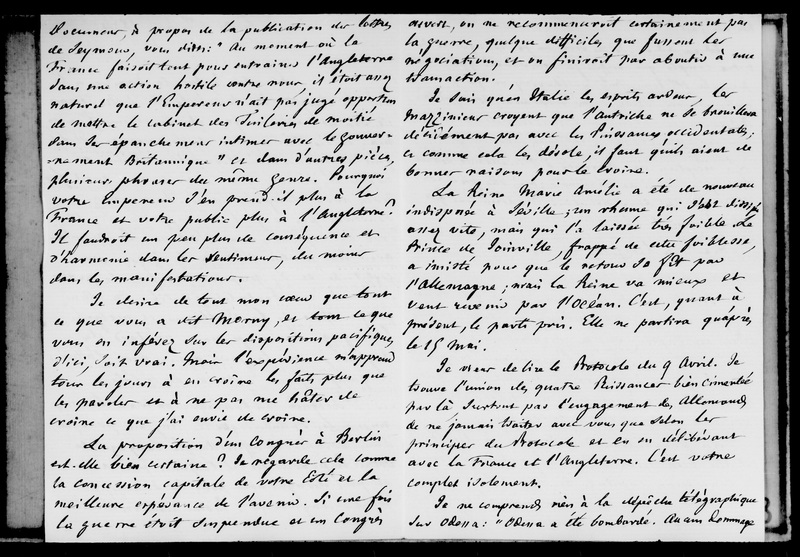 Documens, à propos de la publication des lettres
de Seymour, vous dites: "Au moment où la
France faisoit tout pour entrainer l'Angleterre
dans une action hostile contre nous, il étoit assez
naturel que l'Empereur n'ait pas jugé opportun
de mettre le cabinet des Tuileries de moitié
dans ses épanchemens intimes avec le gouver-
nement Britannique" et dans d'autres pièces,
plusieurs phrases du même genre. Pourquoi
votre empereur s'en prend-il plus à la
France et votre public plus à l'Angleterre?
Il faudroit un peu plus de conséquence et
d'harmonie dans les sentimens, du moins
dans les manifestations.
Je desire de tout mon cœur que tout
ce que vous a dit Morny, et tout ce que
vous en inférez sur les dispositions pacifiques
d'ici, soit vrai. Mais l'expérience m'apprend
tous les jours à en croire les faits plus que
les paroles et à ne pas me hâter de
croire ce que j'ai envie de croire.
La proposition d'un Congrès à Berlin
est-elle bien certaine? Je regarde cela comme
la concession capitale de votre côté et la
meilleure espérance de l'avenir. Si une fois
la guerre étoit suspendue et un Congrès
ouvert, on ne recommenceroit certainement pas
la guerre, quelque difficiles que fussent les
négociations, et on finiroit par aboutir à une
transaction.
Je sais qu'en Italie les esprits ardens, les
Mazziniens croyent que l'Autriche ne se brouillera
décidément pas avec les Puissances occidentales;
et comme cela les désole, il faut qu'ils aient de
bonnes raisons pour le croire.
La Reine Marie Amélie a été de nouveau
indisposée à Séville; un rhume qui s'est dissipé
assez vite, mais qui l'a laissée très foible. Le
Prince de Joinville, frappé de cette foiblesse,
a insisté pour que le retour se fît par
l'Allemagne; mais la Reine va mieux et
veut revenir par l'Océan. C'est, quant à
présent, le parti pris. Elle ne partira qu'après
le 15 Mai.
Je viens de lire le Protocole du 9 Avril. Je
trouve l'union des quatre Puissances bien cimentée
par là surtout par l'engagement des Allemands
de ne jamais traiter avec vous que selon les
principes du Protocole et en en délibérant
avec la France et l'Angleterre. C'est votre
complet isolement.
Je ne comprends rien à la dépêche télégraphique
sur Odessa: "Odessa a été bombardé. Aucun dommage